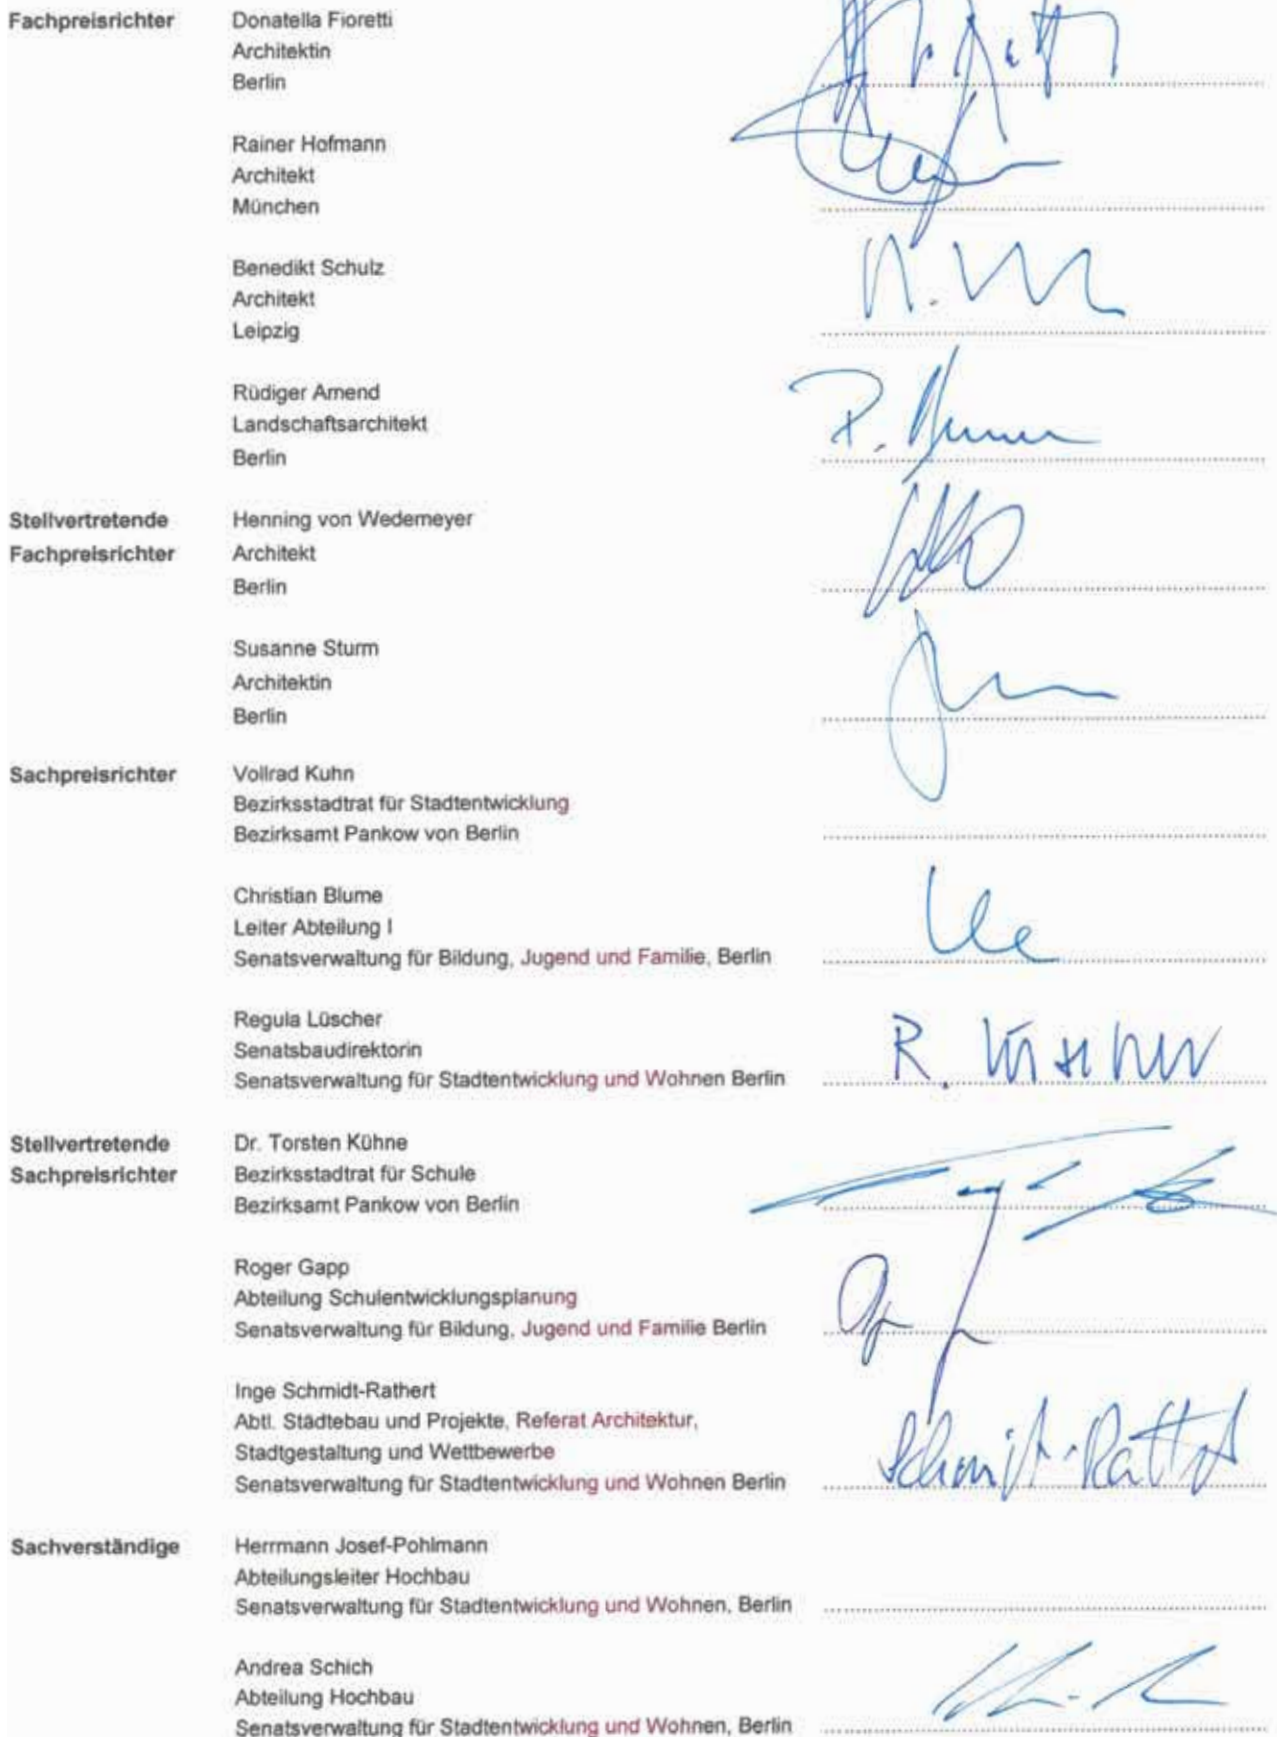 Fachpreisrichter Donatella Fioretti
Architektin
Berlin
Rainer Hofmann
Architekt
München
Benedikt Schulz
Architekt
Leipzig
Rüdiger Amend
Landschaftsarchitekt
Berlin
Stellvertretende Henning von Wedemeyer
Fachpreisrichter Architekt
Berlin
Susanne Sturm
Architektin
Berlin
Sachpreisrichter Vollrad Kuhn
Bezirksstadtrat für Stadtentwicklung
Bezirksamt Pankow von Berlin
Christian Blume
Leiter Abteilung I
Senatsverwaltung für Bildung, Jugend und Familie, Berlin
Regula Lüscher
Senatsbaudirektorin
Senatsverwaltung für Stadtentwicklung und Wohnen Berlin R. Lüscher
Stellvertretende Dr. Torsten Kühne
Sachpreisrichter Bezirksstadtrat für Schule
Bezirksamt Pankow von Berlin
Roger Gapp
Abteilung Schulentwicklungsplanung
Senatsverwaltung für Bildung, Jugend und Familie Berlin
Inge Schmidt-Rathert
Abtl. Städtebau und Projekte, Referat Architektur,
Stadtgestaltung und Wettbewerbe
Senatsverwaltung für Stadtentwicklung und Wohnen Berlin
Sachverständige Herrmann Josef-Pohlmann
Abteilungsleiter Hochbau
Senatsverwaltung für Stadtentwicklung und Wohnen, Berlin
Andrea Schich
Abteilung Hochbau
Senatsverwaltung für Stadtentwicklung und Wohnen, Berlin